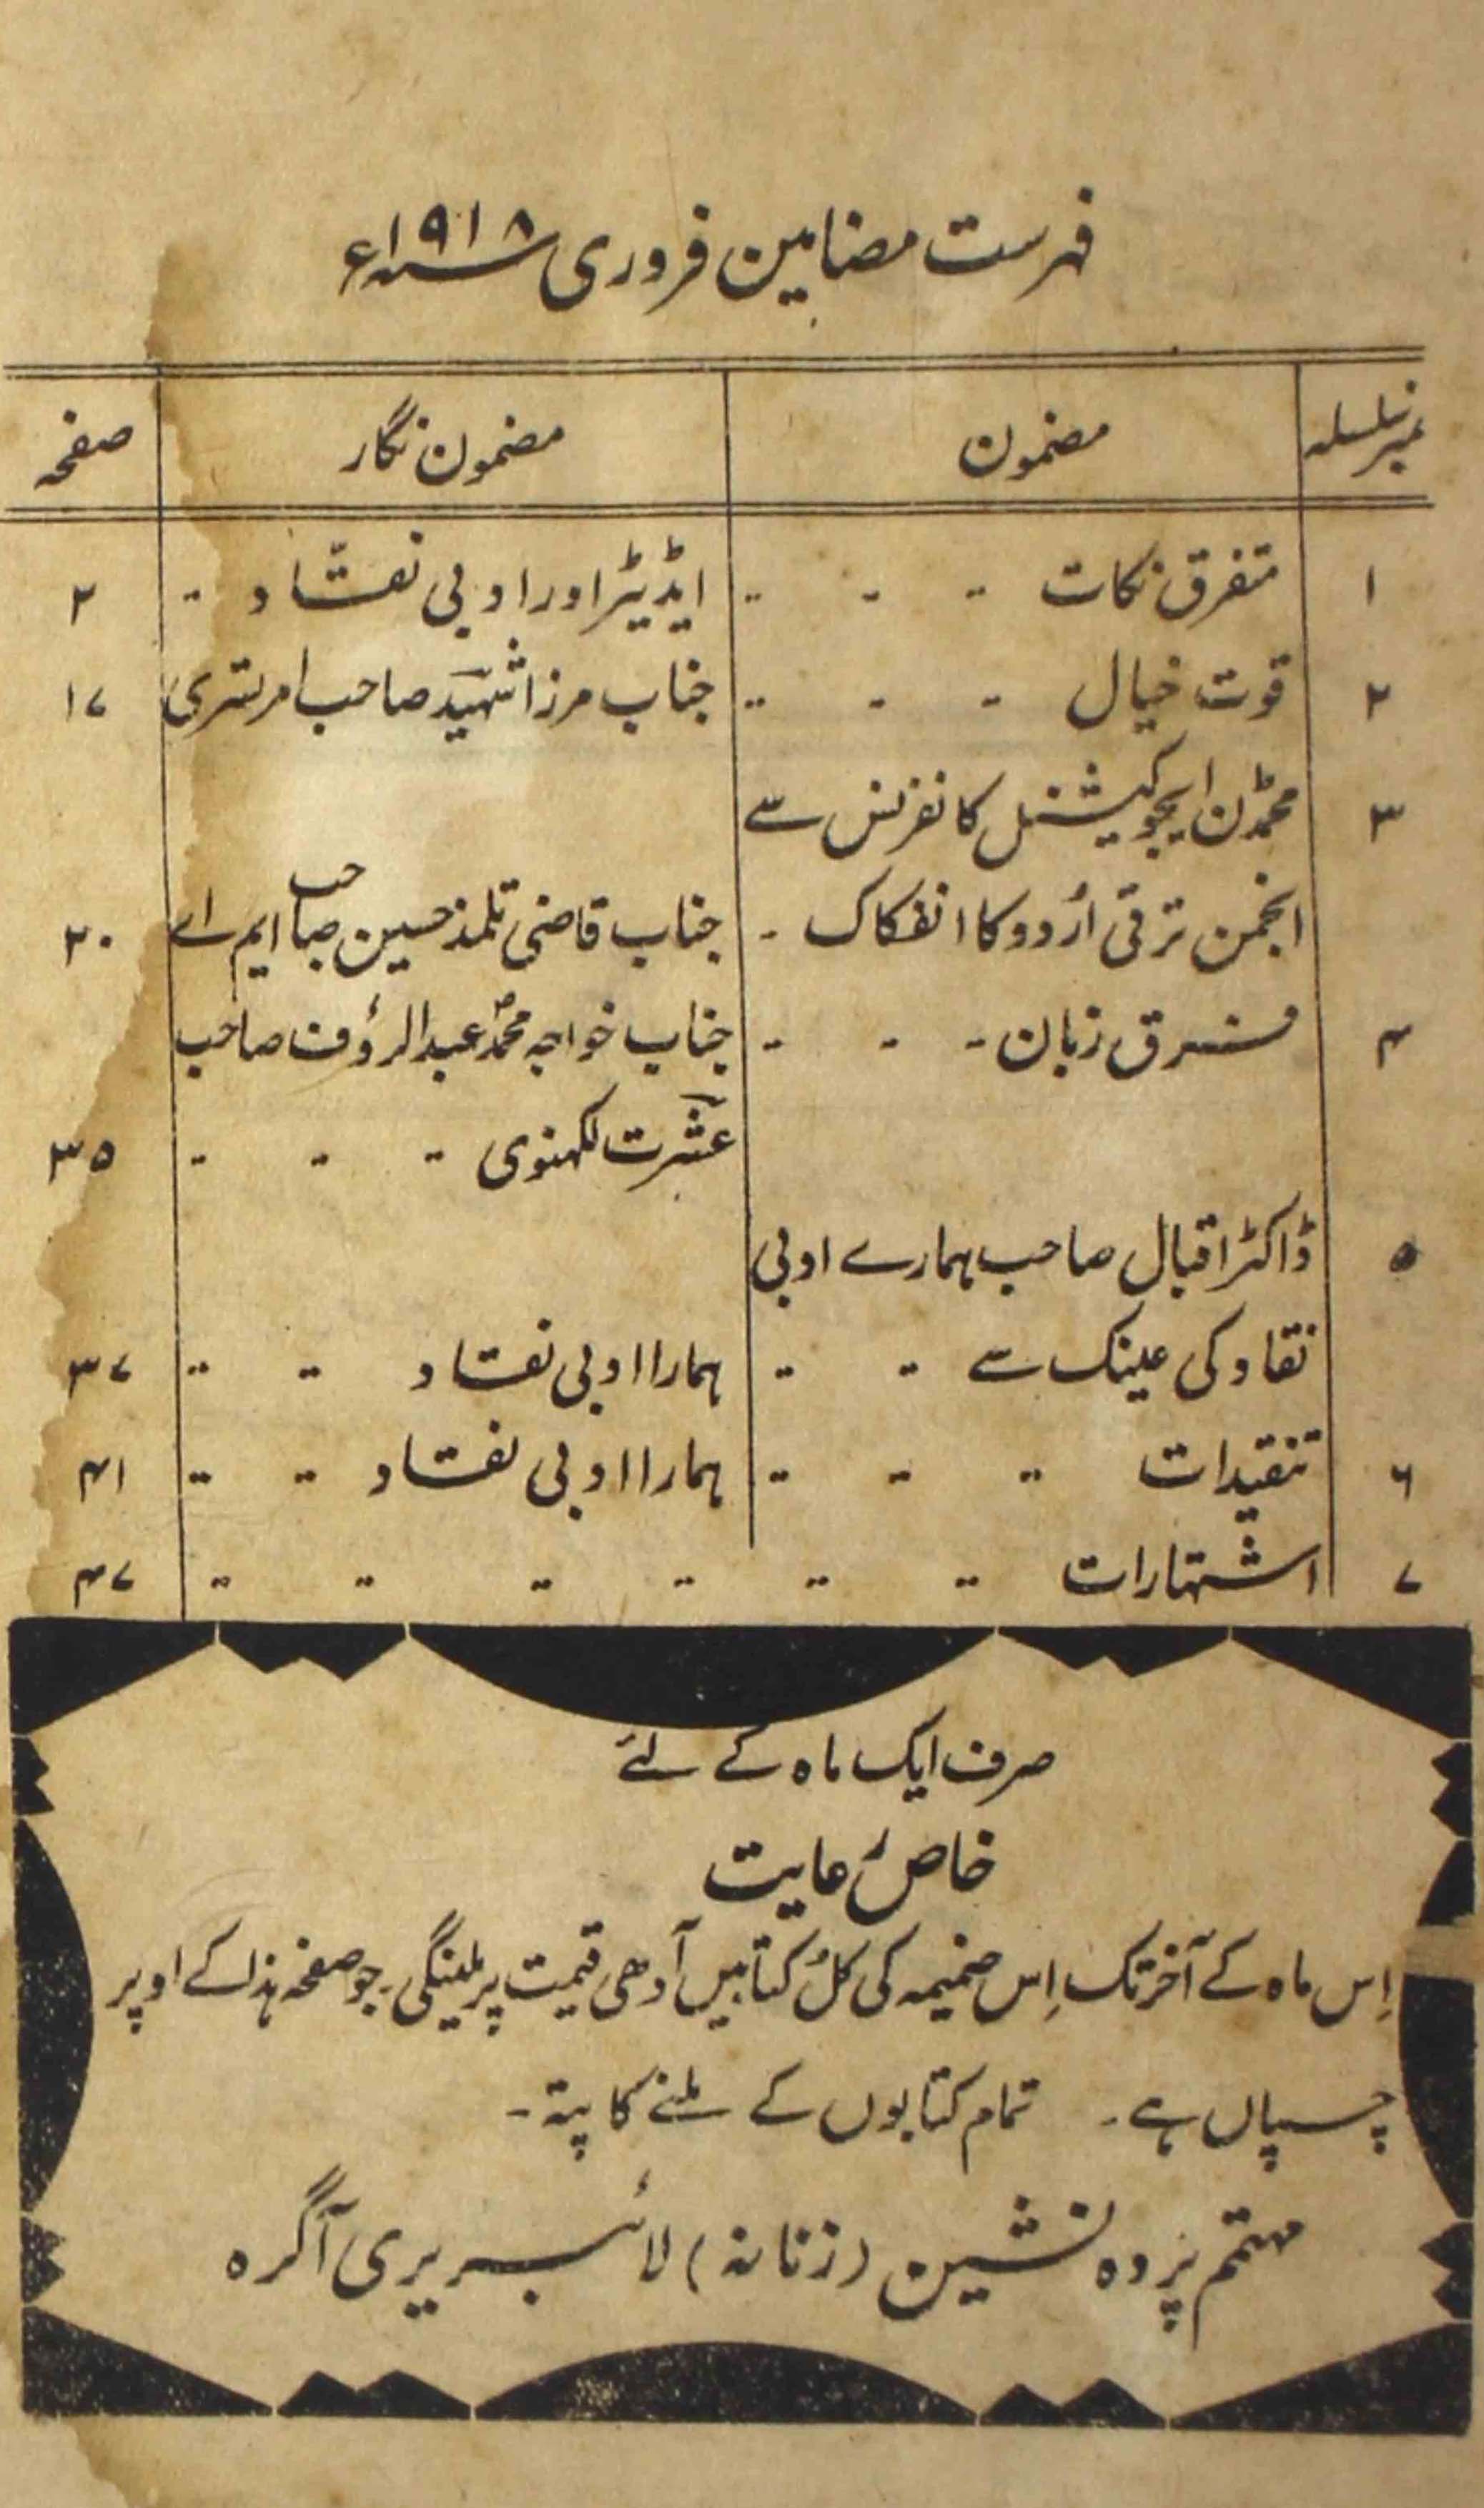 فہرست مضامین فروری سنہ ۱۹۱۸ء
نمبر سلسلہ مضمون مضمون نگار صفحہ
۱ متفرق نکات - - - ایڈیٹر اور ادبی نقّاد - ۲
۲ قوت خیال - - - جناب مرزا شہید صاحب امرتسری ۱۷
۳ محمڈن ایجوکیشنل کانفرنس سے
انجمن ترقی اُردو کا انفکاک - جناب قاضی تلمذ حسین صاحب ایم اے ۲۰
۴ فسرق زبان - - - جناب خواجہ محمد عبدالرؤف صاحب
عشرت لکہنوی - - - ۳۵
۵ ڈاکٹر اقبال صاحب ہمارے ادبی
نقاد کی عینک سے - - ہمارا ادبی نقاد - - ۳۷
۶ تنقیدات - - - ہمارا ادبی نقاد - - ۴۱
۷ اشتہارات - - - - - - ۴۷
صرف ایک ماہ کے لئے
خاص رعایت
اِس ماہ کے آخر تک اِس ضمیمہ کی کل کتابیں آدھی قیمت پر ملینگی۔ جو صفحہ ہذا کے اوپر
چسپاں ہے۔ تمام کتابوں کے ملنے کا پتہ۔
مہتمم پردہ نشین (زنانہ) لائبریری آگرہ